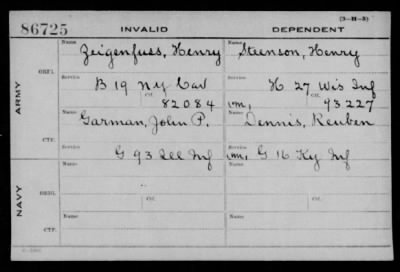 (3-H-5)
86725 INVALID DEPENDENT
ARMY
ORIG.
Name Zeigenfuss, Henry
Name Steenson, Henry
Service B 19 NY Cav
Service H 27 Wis Inf
Ctf. 82084
Ctf. 93227
CTF.
Name Garman, John P.
Name Dennis, Reuben
Service G 93 Ill Inf
Service G 16 Ky Inf
NAVY
ORIG.
Name
Name
Service
Service
Ctf.
Ctf.
CTF.
Name
Name